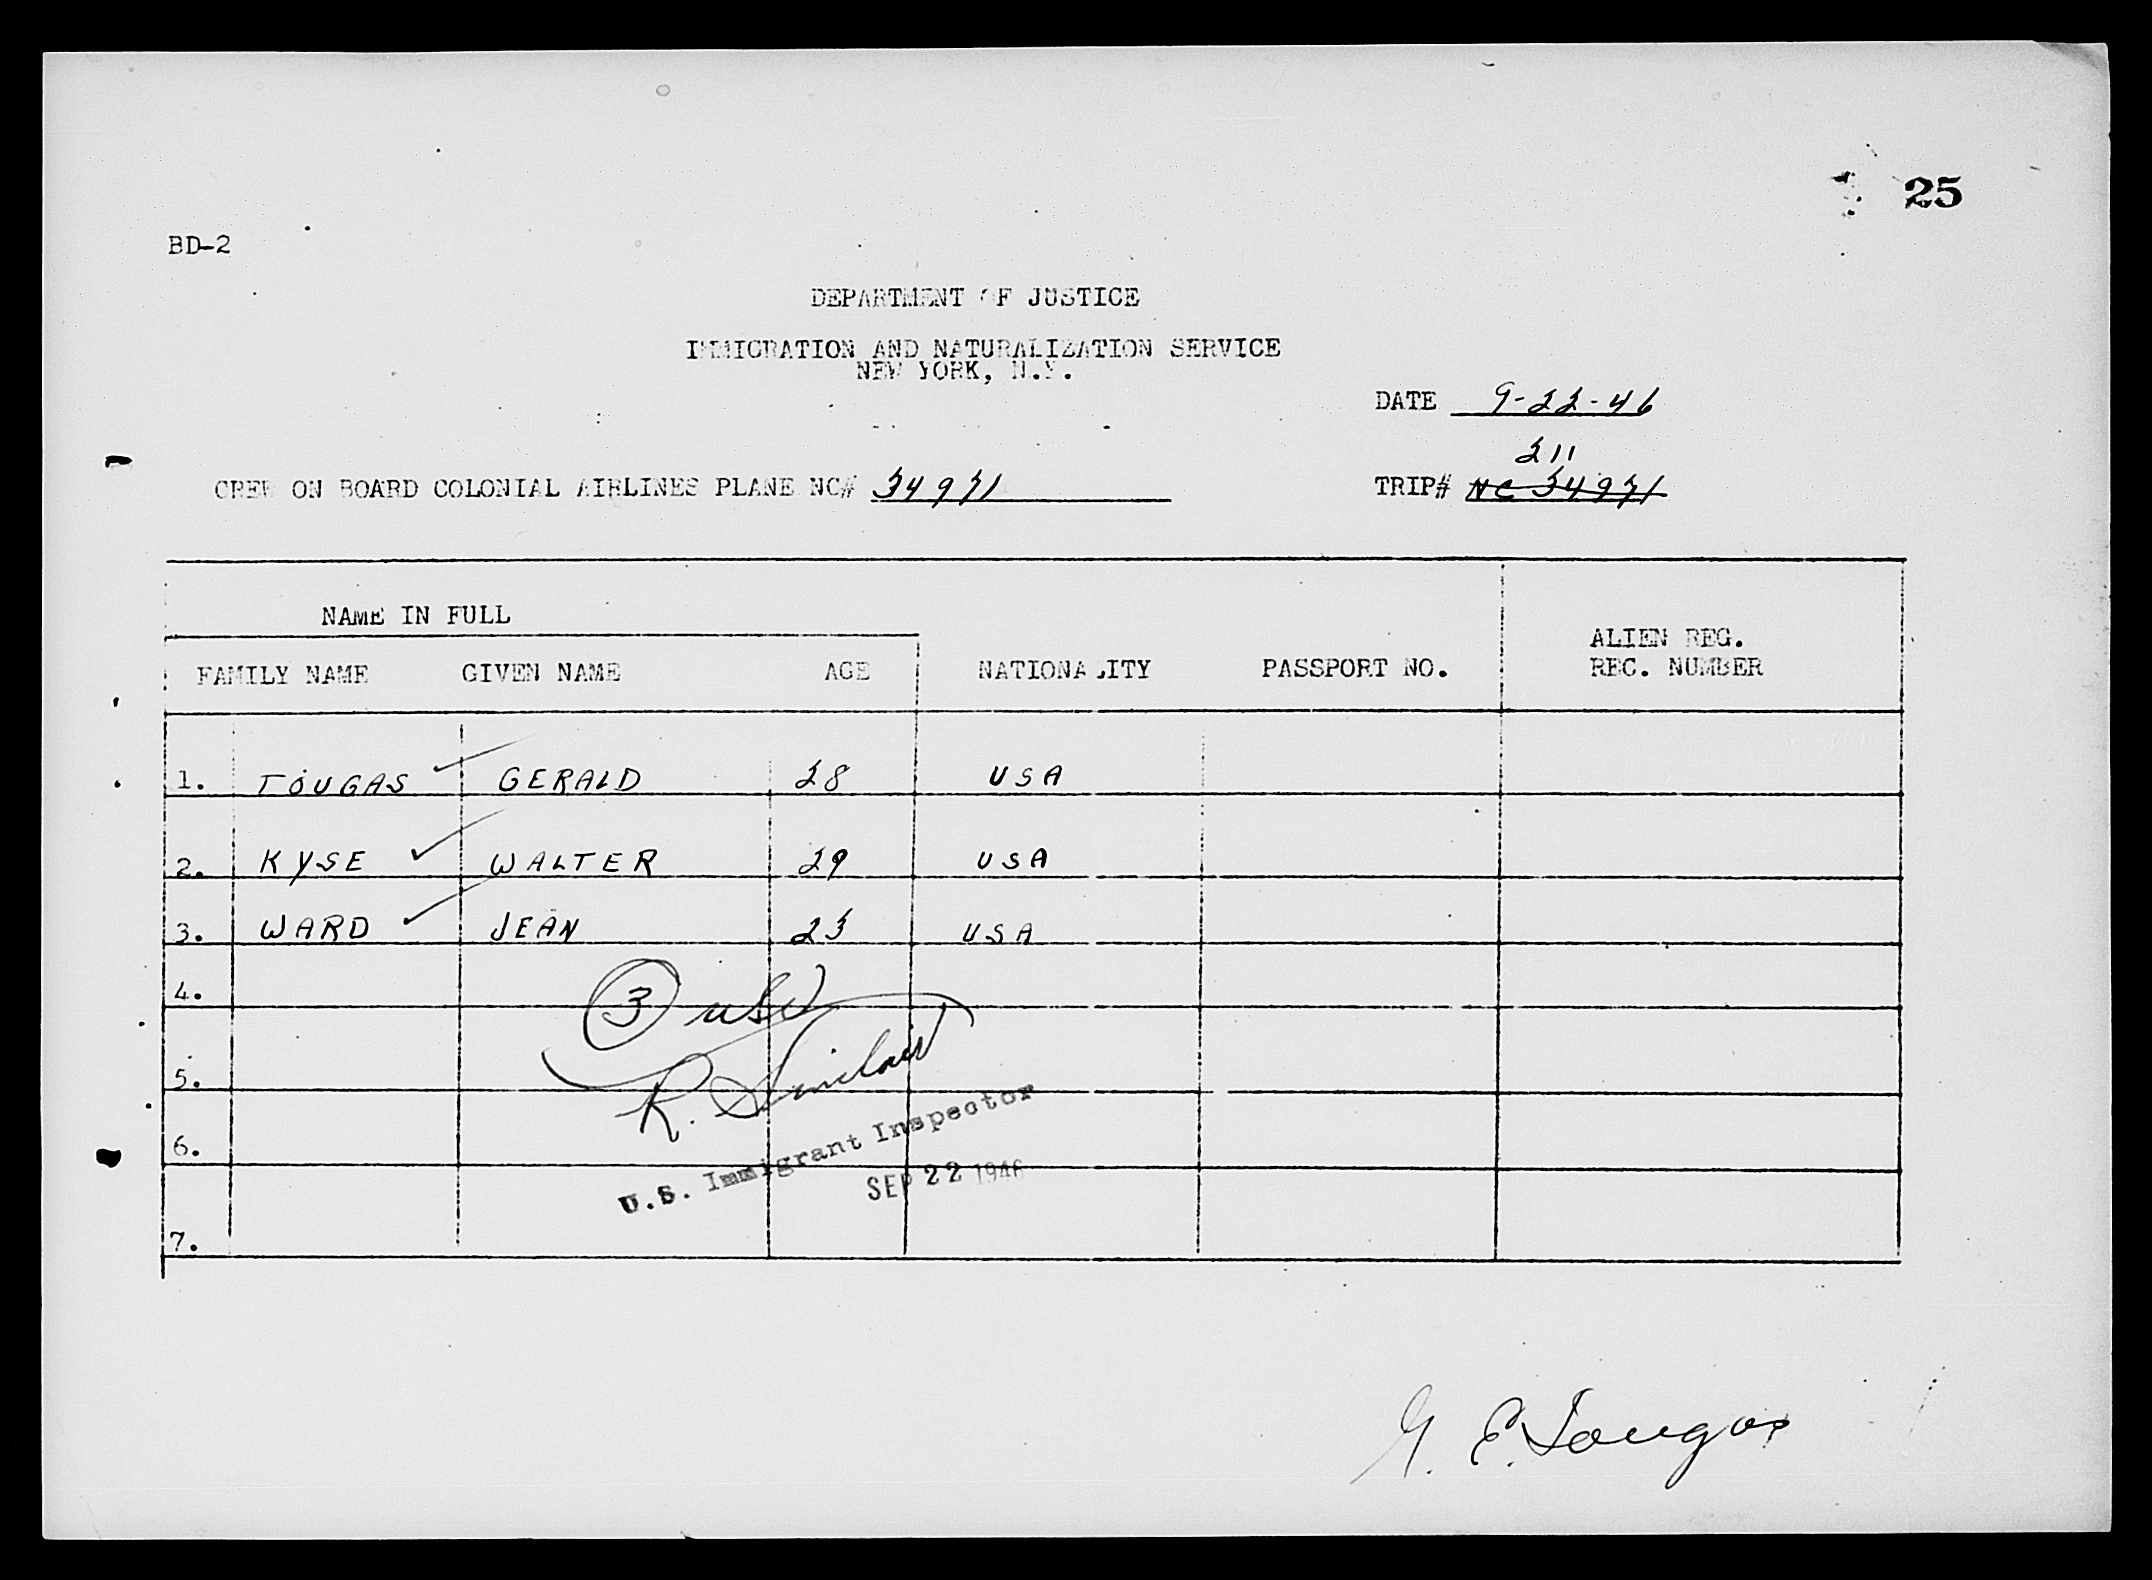 25
BD-2
DEPARTMENT OF JUSTICE
IMMIGRATION AND NATURALIZATION SERVICE
NEW YORK, N.Y.
DATE 9-22-46
211
CREW ON BOARD COLONIAL AIRLINES PLANE NC# 34971 TRIP# NC 34971
NAME IN FULL
FAMILY NAME GIVEN NAME AGE NATIONALITY PASSPORT NO. ALIEN REG. REC. NUMBER
1. TOUGAS GERALD 28 USA
2. KYSE WALTER 29 USA
3. WARD JEAN 23 USA
4.
5.
6.
7.
3 USC
R. Sinclair
U.S. Immigrant Inspector
SEP 22 1946
G. E. Tougas